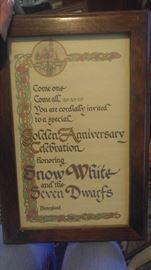 Come one
Come all,
You are cordially invited
to a special
Golden Anniversary
Celebration
honoring
Snow White
and the
Seven Dwarfs
Disneyland